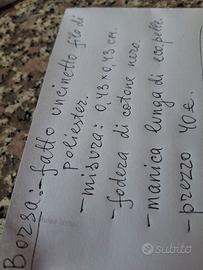 Borsa:-fatto uncinetto filo di
poliester.
-misura: 0,43 x 0,43 cm.
-fodera di cotone nero.
-manica lunga di ecopelle
-prezzo 40€.
subito